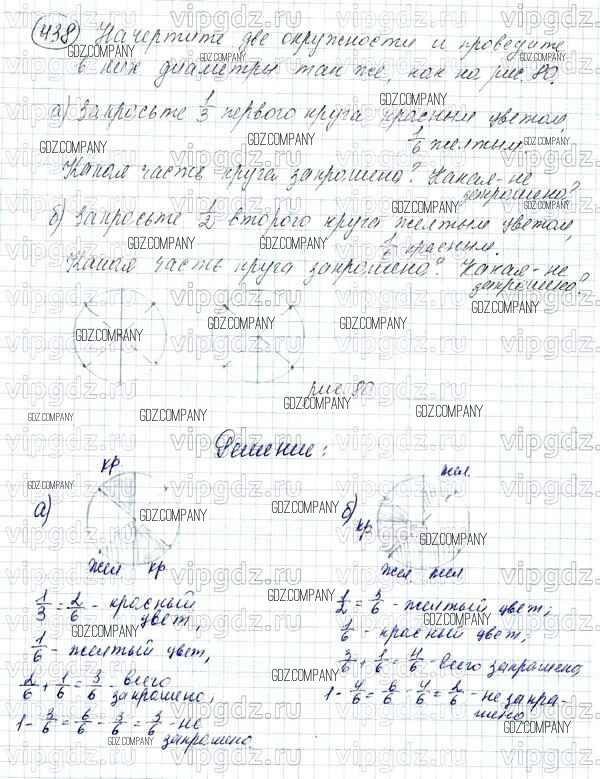 438 Начертите две окружности и проведите
в них диаметры так же, как на рис. 80.
а) Закрасьте 1/3 первого круга красным цветом,
1/6 желтым.
Какая часть круга закрашена? Какая - не
закрашена?
б) Закрасьте 1/2 второго круга желтым цветом,
1/6 красным.
Какая часть круга закрашена? Какая - не
закрашена?
GDZ.COMPANY
vipgdz.ru
рис. 80
Решение:
а) кр
жел кр
1/3 = 2/6 - красный
цвет,
1/6 - желтый цвет,
2/6 + 1/6 = 3/6 - всего
закрашено,
1 - 3/6 = 6/6 - 3/6 = 3/6 - не
закрашено
б) жел.
кр
жел жел
1/2 = 3/6 - желтый цвет;
1/6 - красный цвет;
3/6 + 1/6 = 4/6 - всего закрашено
1 - 4/6 = 6/6 - 4/6 = 2/6 - не закра-
шено